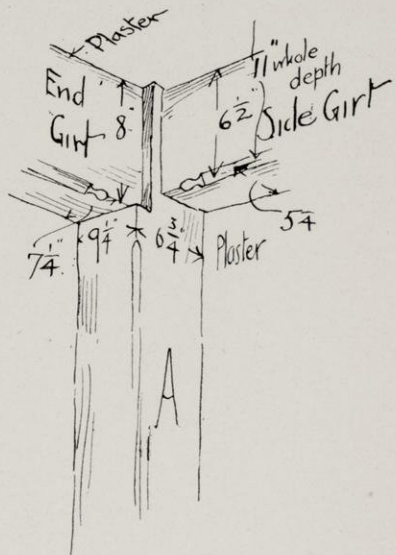 Plaster
End
Girt
8"
11" whole
depth
6 1/2"
Side Girt
5 1/4
7 1/4"
9 1/4"
6 3/4"
Plaster
A